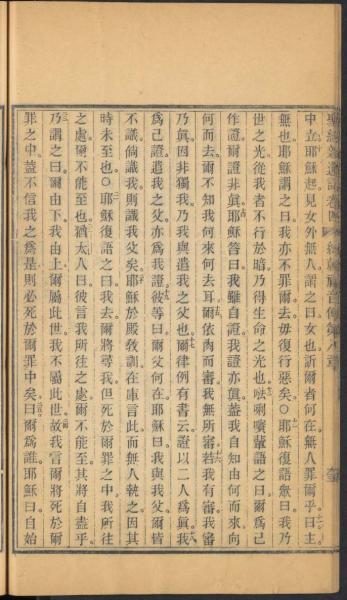 聖經新遺詔卷四
約翰福音傳第八章
中立耶穌起見女外無人謂之曰女也訴爾者何在無人罪爾乎曰主
無也耶穌謂之曰我亦不罪爾去毋復行惡矣○耶穌復語眾曰我乃
世之光從我者不行於暗乃得生命之光也𠵽唎㘔輩語之曰爾為己
作證爾證非眞耶穌答曰我雖自證我證亦眞蓋我自知由何而來向
何而去爾不知我何來何去耳爾依肉而審我無所審若我有審我審
乃眞因非獨我乃我與遣我之父也爾律例有書云證以二人為眞我
為己證遣我之父亦為我證彼等曰爾父何在耶穌曰我與我父爾皆
不識倘識我則識我父矣耶穌於殿敎訓在庫言此而無人執之因其
時未至也○耶穌復語之曰我去爾將尋我但死於爾罪之中我所往
之處爾不能至也猶太人曰彼言我所往之處爾不能至其將自盡乎
乃謂之曰爾由下我由上爾屬此世我不屬此世故我言爾將死於爾
罪之中蓋不信我之為是則必死於爾罪中矣曰爾為誰耶穌曰自始